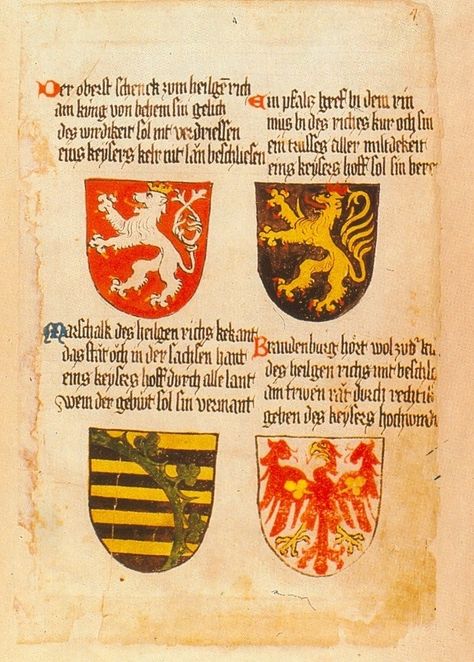 Der oberst schenck zum heilgē rich
am kṅng von behem sin gelich
des wirdikeit sol nit verdriessen
eins keysers kelr tut lān beschliesen
Ein pfalz gref bi dem rin
mus bi des riches kur och sin
ein truſses aller
eins keysers hoff sol sin
Marschalk des heilgen richs bekant
das stāt och in der sachsen hant
eins keysers hoff durch alle lant
wem der gebüt sol sin vermant
Brandenburg hört wol
des heilgen richs mit
am trwen rāt durch
geben des keysers